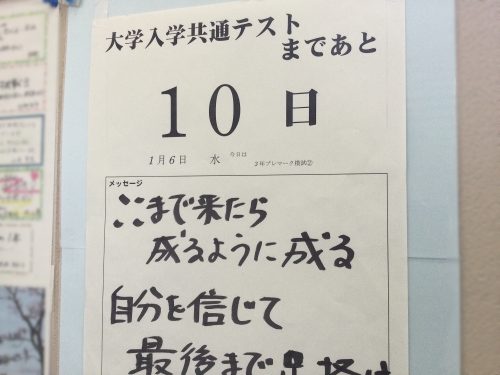 大学入学共通テスト
まであと
10日
1月6日 水 今日は 3年プレマーク模試②
メッセージ
ここまで来たら
成るように成る
自分を信じて
最後まで